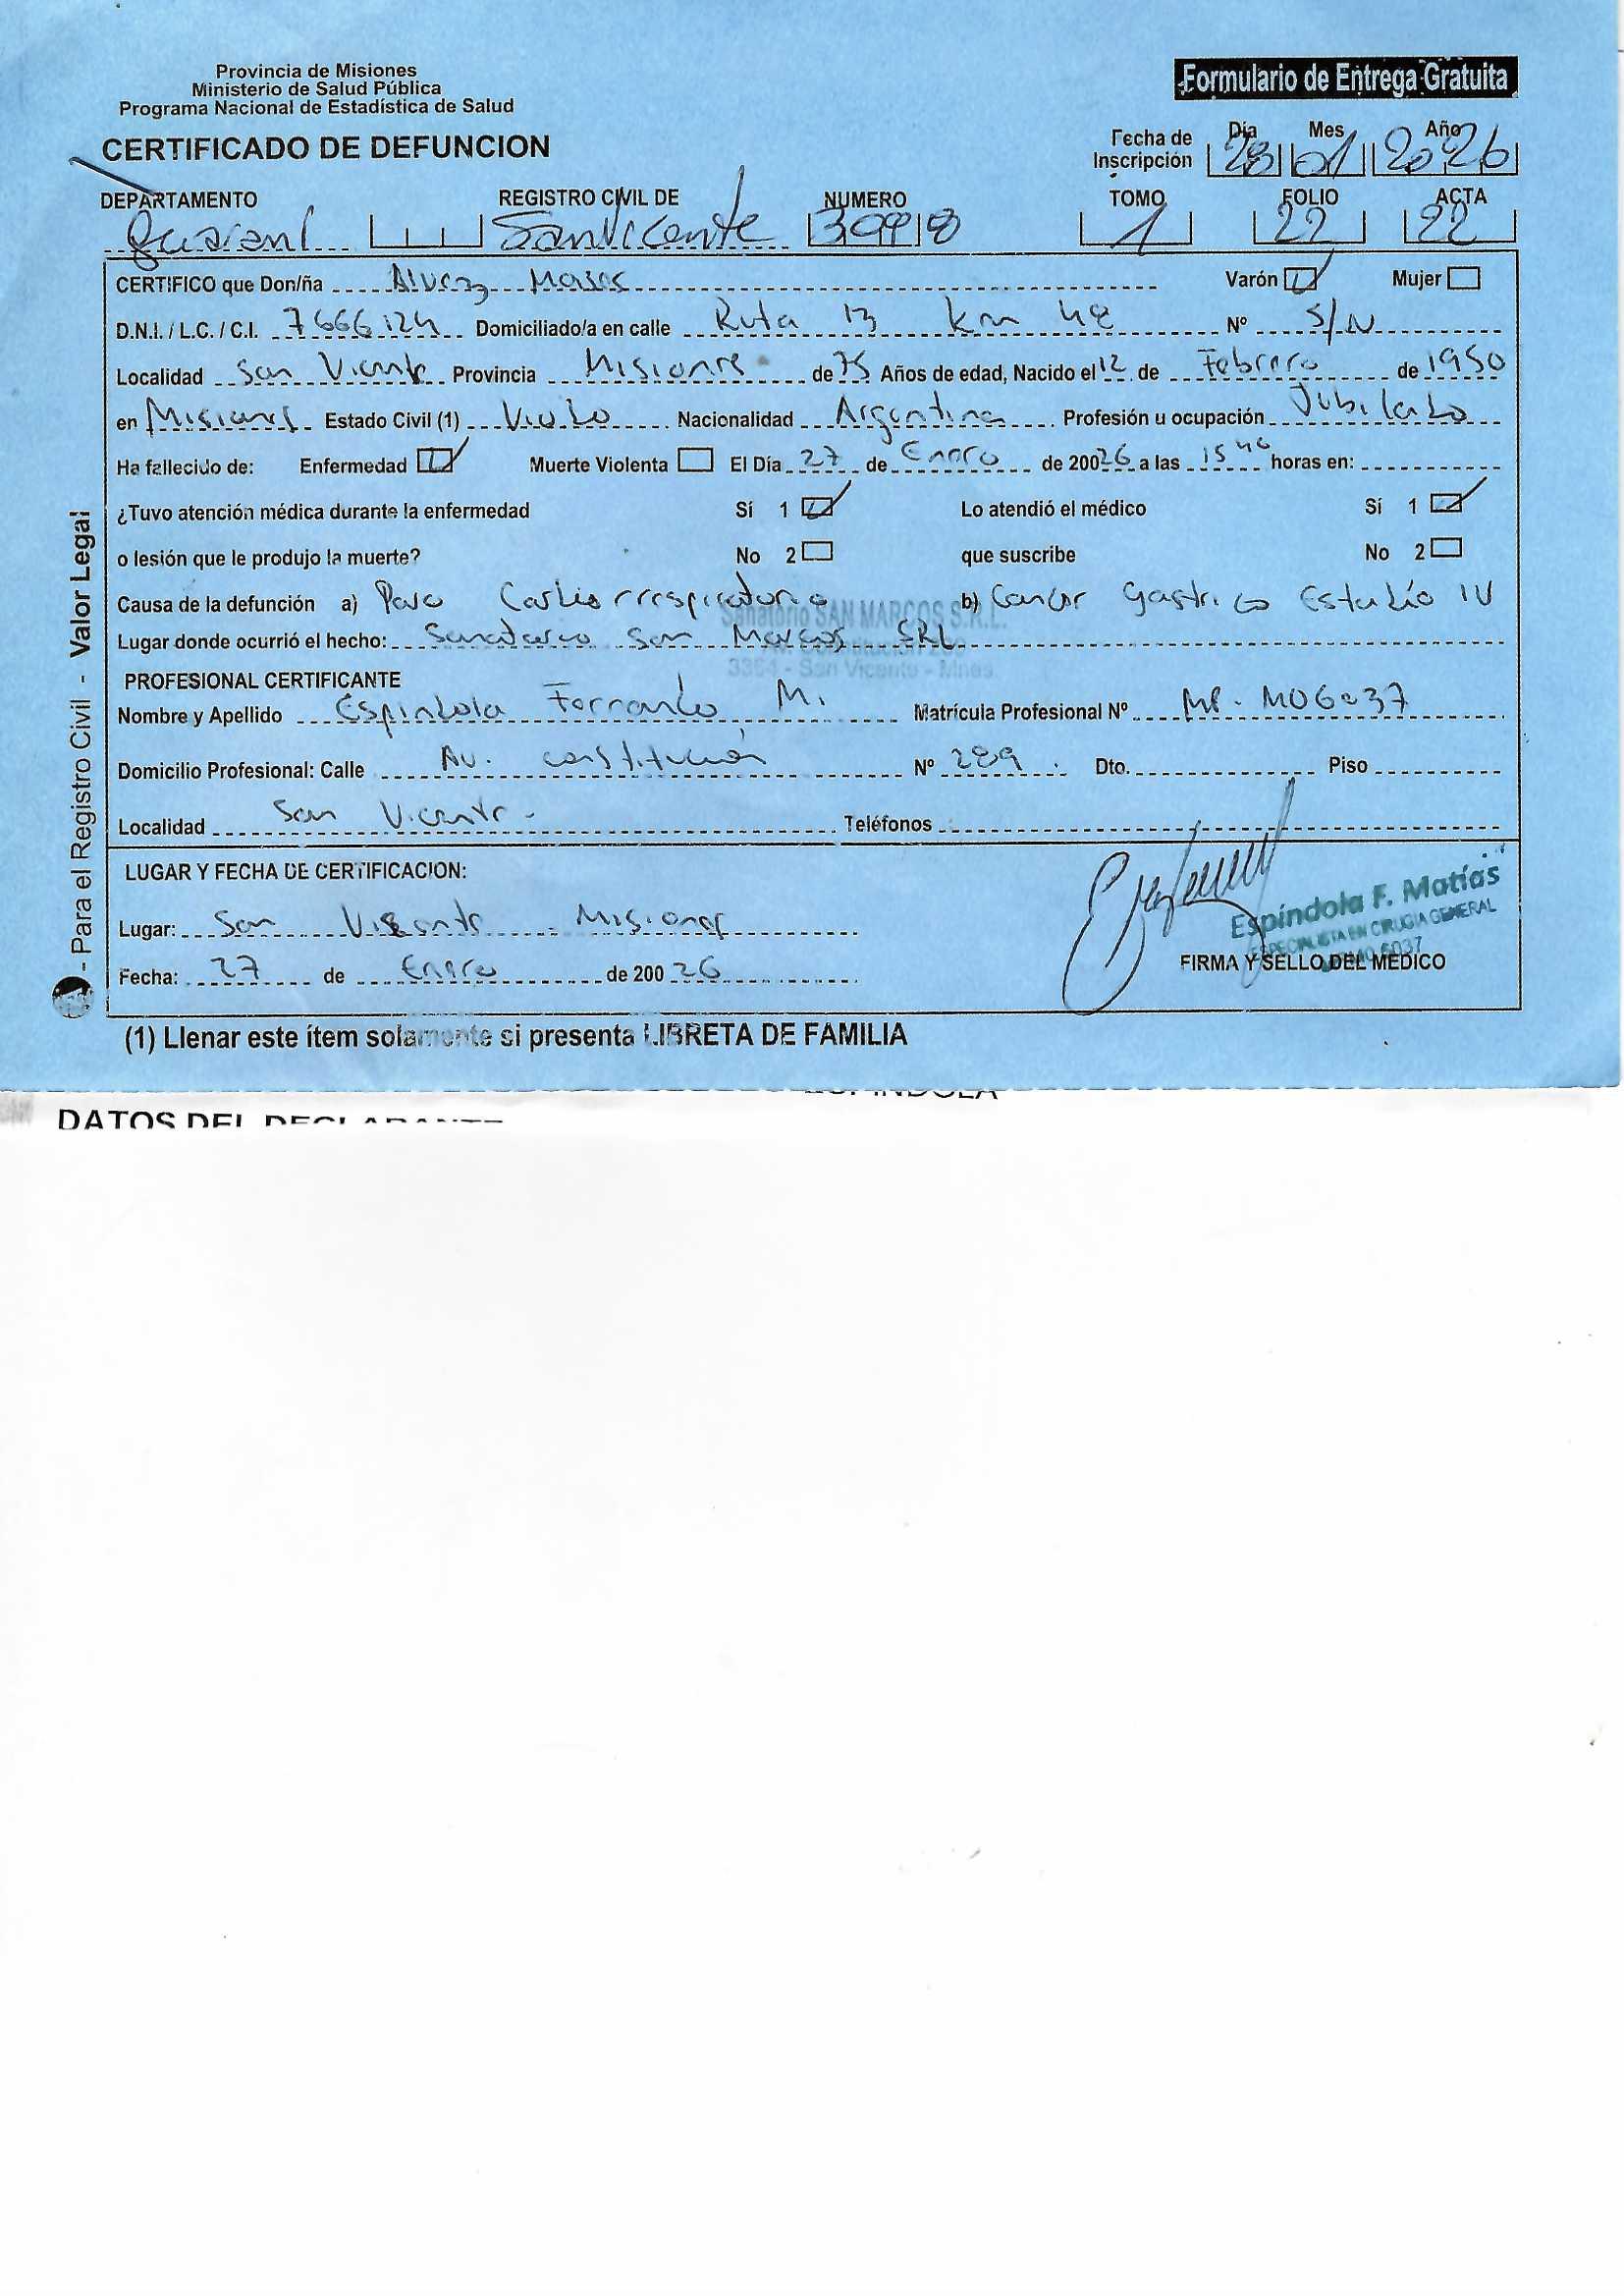 Provincia de Misiones
Ministerio de Salud Pública
Programa Nacional de Estadística de Salud
Formulario de Entrega Gratuita
CERTIFICADO DE DEFUNCION
Fecha de Inscripción Día 28 Mes 01 Año 2026
DEPARTAMENTO REGISTRO CIVIL DE NUMERO TOMO FOLIO ACTA
Guaraní San Vicente 1 22 22
CERTIFICO que Don/ña Alvez Varón Mujer
D.N.I. / L.C. / C.I. 7666124 Domiciliado/a en calle Ruta 13 km 48 Nº S/N
Localidad San Vicente Provincia Misiones de 75 Años de edad, Nacido el 12 de Febrero de 1950
en Misiones Estado Civil (1) Viudo Nacionalidad Argentina Profesión u ocupación Jubilado
Ha fallecido de: Enfermedad Muerte Violenta El Día 27 de Enero de 20026 a las 15 40 horas en:
¿Tuvo atención médica durante la enfermedad Sí 1 Lo atendió el médico Sí 1
o lesión que le produjo la muerte? No 2 que suscribe No 2
Causa de la defunción a) Paro Cardiorrespiratorio b) Cancer Gastrico Estadío IV
Sanatorio SAN MARCOS S.R.L.
Lugar donde ocurrió el hecho: Sanatorio San Marcos SRL
San Vicente - Mnes
PROFESIONAL CERTIFICANTE
Nombre y Apellido Espindola Fernando M. Matrícula Profesional Nº MP. M06037
Domicilio Profesional: Calle Av. constitución Nº 289 Dto. Piso
Localidad San Vicente - Teléfonos
LUGAR Y FECHA DE CERTIFICACION:
Lugar: San Vicente Misiones
Fecha: 27 de Enero de 200 26
Espíndola F. Matías
ESPECIALISTA EN CIRUGIA GENERAL
FIRMA Y SELLO DEL MEDICO
(1) Llenar este ítem solamente si presenta LIBRETA DE FAMILIA
- Para el Registro Civil - Valor Legal
DATOS DEL DECLARANTE